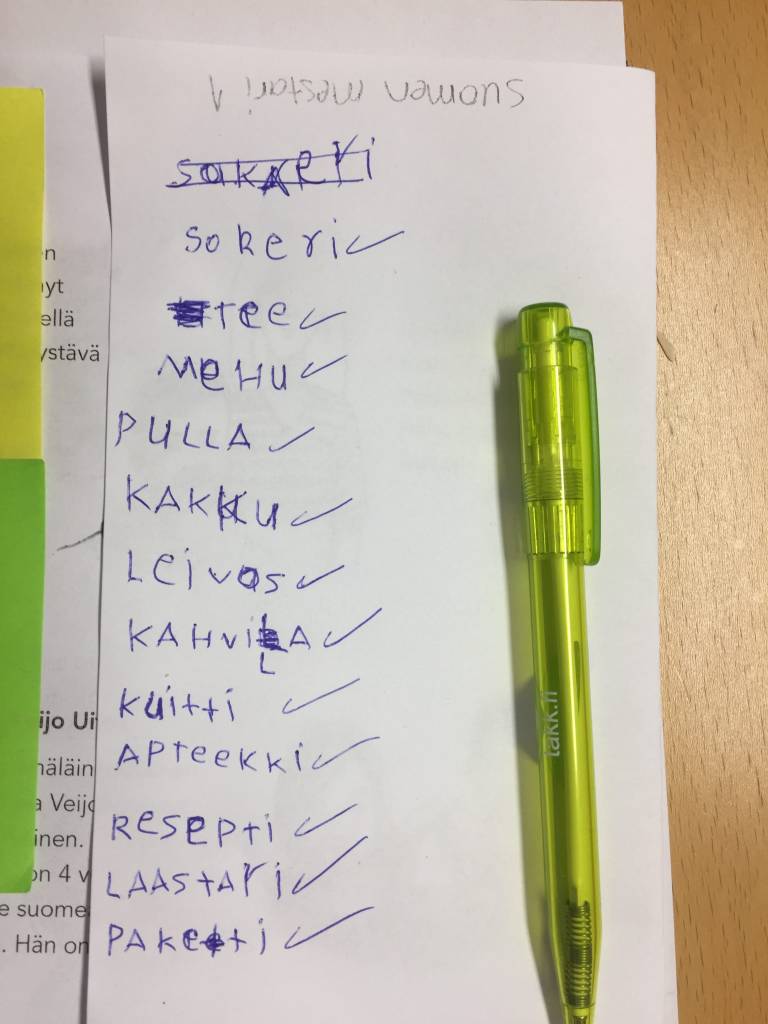 suomen mestari 1
sakari
sokeri ✓
tee ✓
MeHu ✓
PULLA ✓
KAKKU ✓
Leivos ✓
KAHviLA ✓
L
kuitti ✓
APteekki ✓
Resepti ✓
LAAstAri ✓
PAKetti ✓
takk.fi
en
yt
ellä
ystävä
ijo Ui
mäläin
a Veijo
inen.
on 4 v
e suome
. Hän on